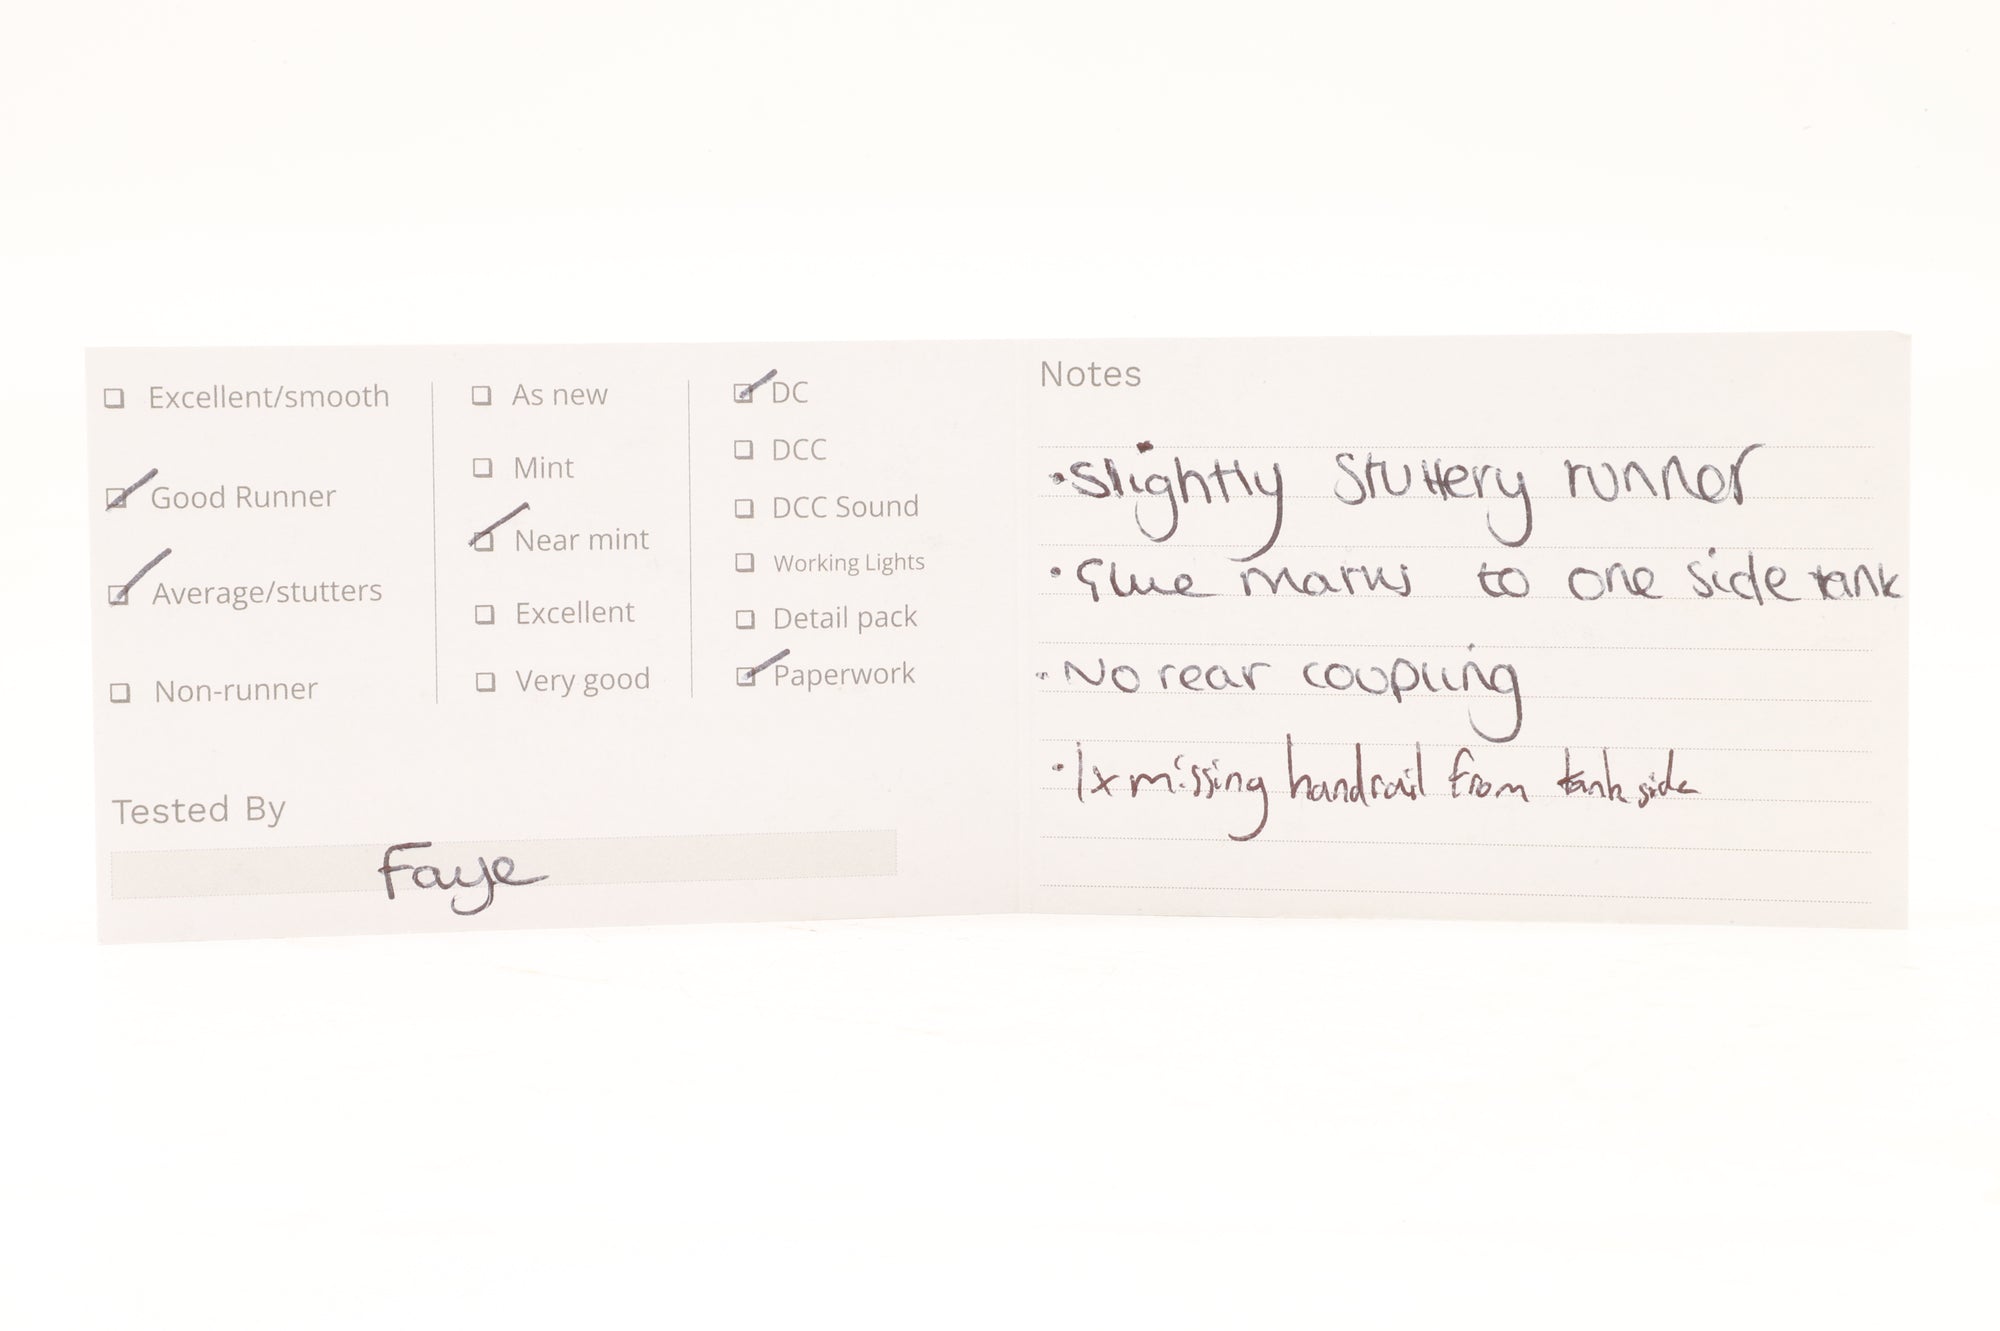 Excellent/smooth
Good Runner
Average/stutters
Non-runner
As new
Mint
Near mint
Excellent
Very good
DC
DCC
DCC Sound
Working Lights
Detail pack
Paperwork
Tested By
Faye
Notes
• Slightly stuttery runner
• Glue marks to one side tank
• No rear coupling
• 1x missing handrail from tank side